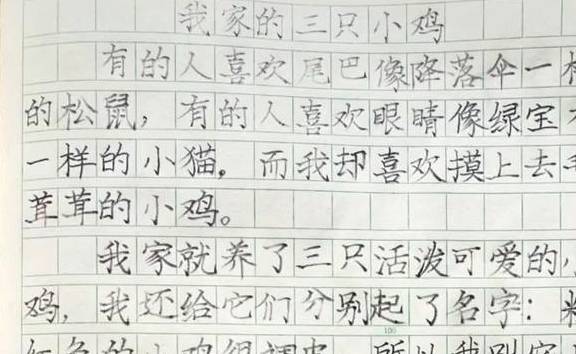 我家的三只小鸡
有的人喜欢尾巴像降落伞一样
的松鼠，有的人喜欢眼睛像绿宝
一样的小猫。而我却喜欢摸上去毛
茸茸的小鸡。
我家就养了三只活泼可爱的小
鸡，我还给它们分别起了名字：
100
红色的小鸡很调皮，所以我叫它